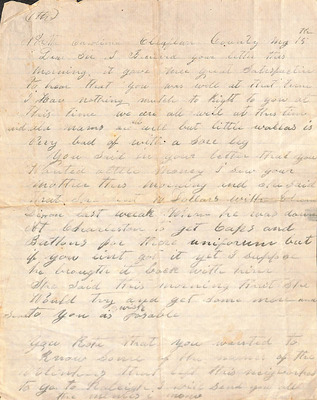 North Carolina Clevelan County Aug 15 th
Dear Sir I Receivd your letter this
Morning. it gave me great Satisfaction
to hear that you was well at that time
I Hav nothing much to Right to you at
this time we are all well at this time
and all but little
very bad of with a sore leg
You said in your letter that you
Wanted a little money I saw your
mother this morning and she said
that She Sent 10 Dollars with
last week When he was down
At Charleston to get Caps and
Buttons for thare uniforum but
if you aint got it yet I suppose
he brought it back with him
She said this morning that She
Would try and get some more and
send to you as soon as posable
You Rote that you wanted to
Know some of the names of the
that left this neighborhood
to go to Raleigh I will send you all
the names I now